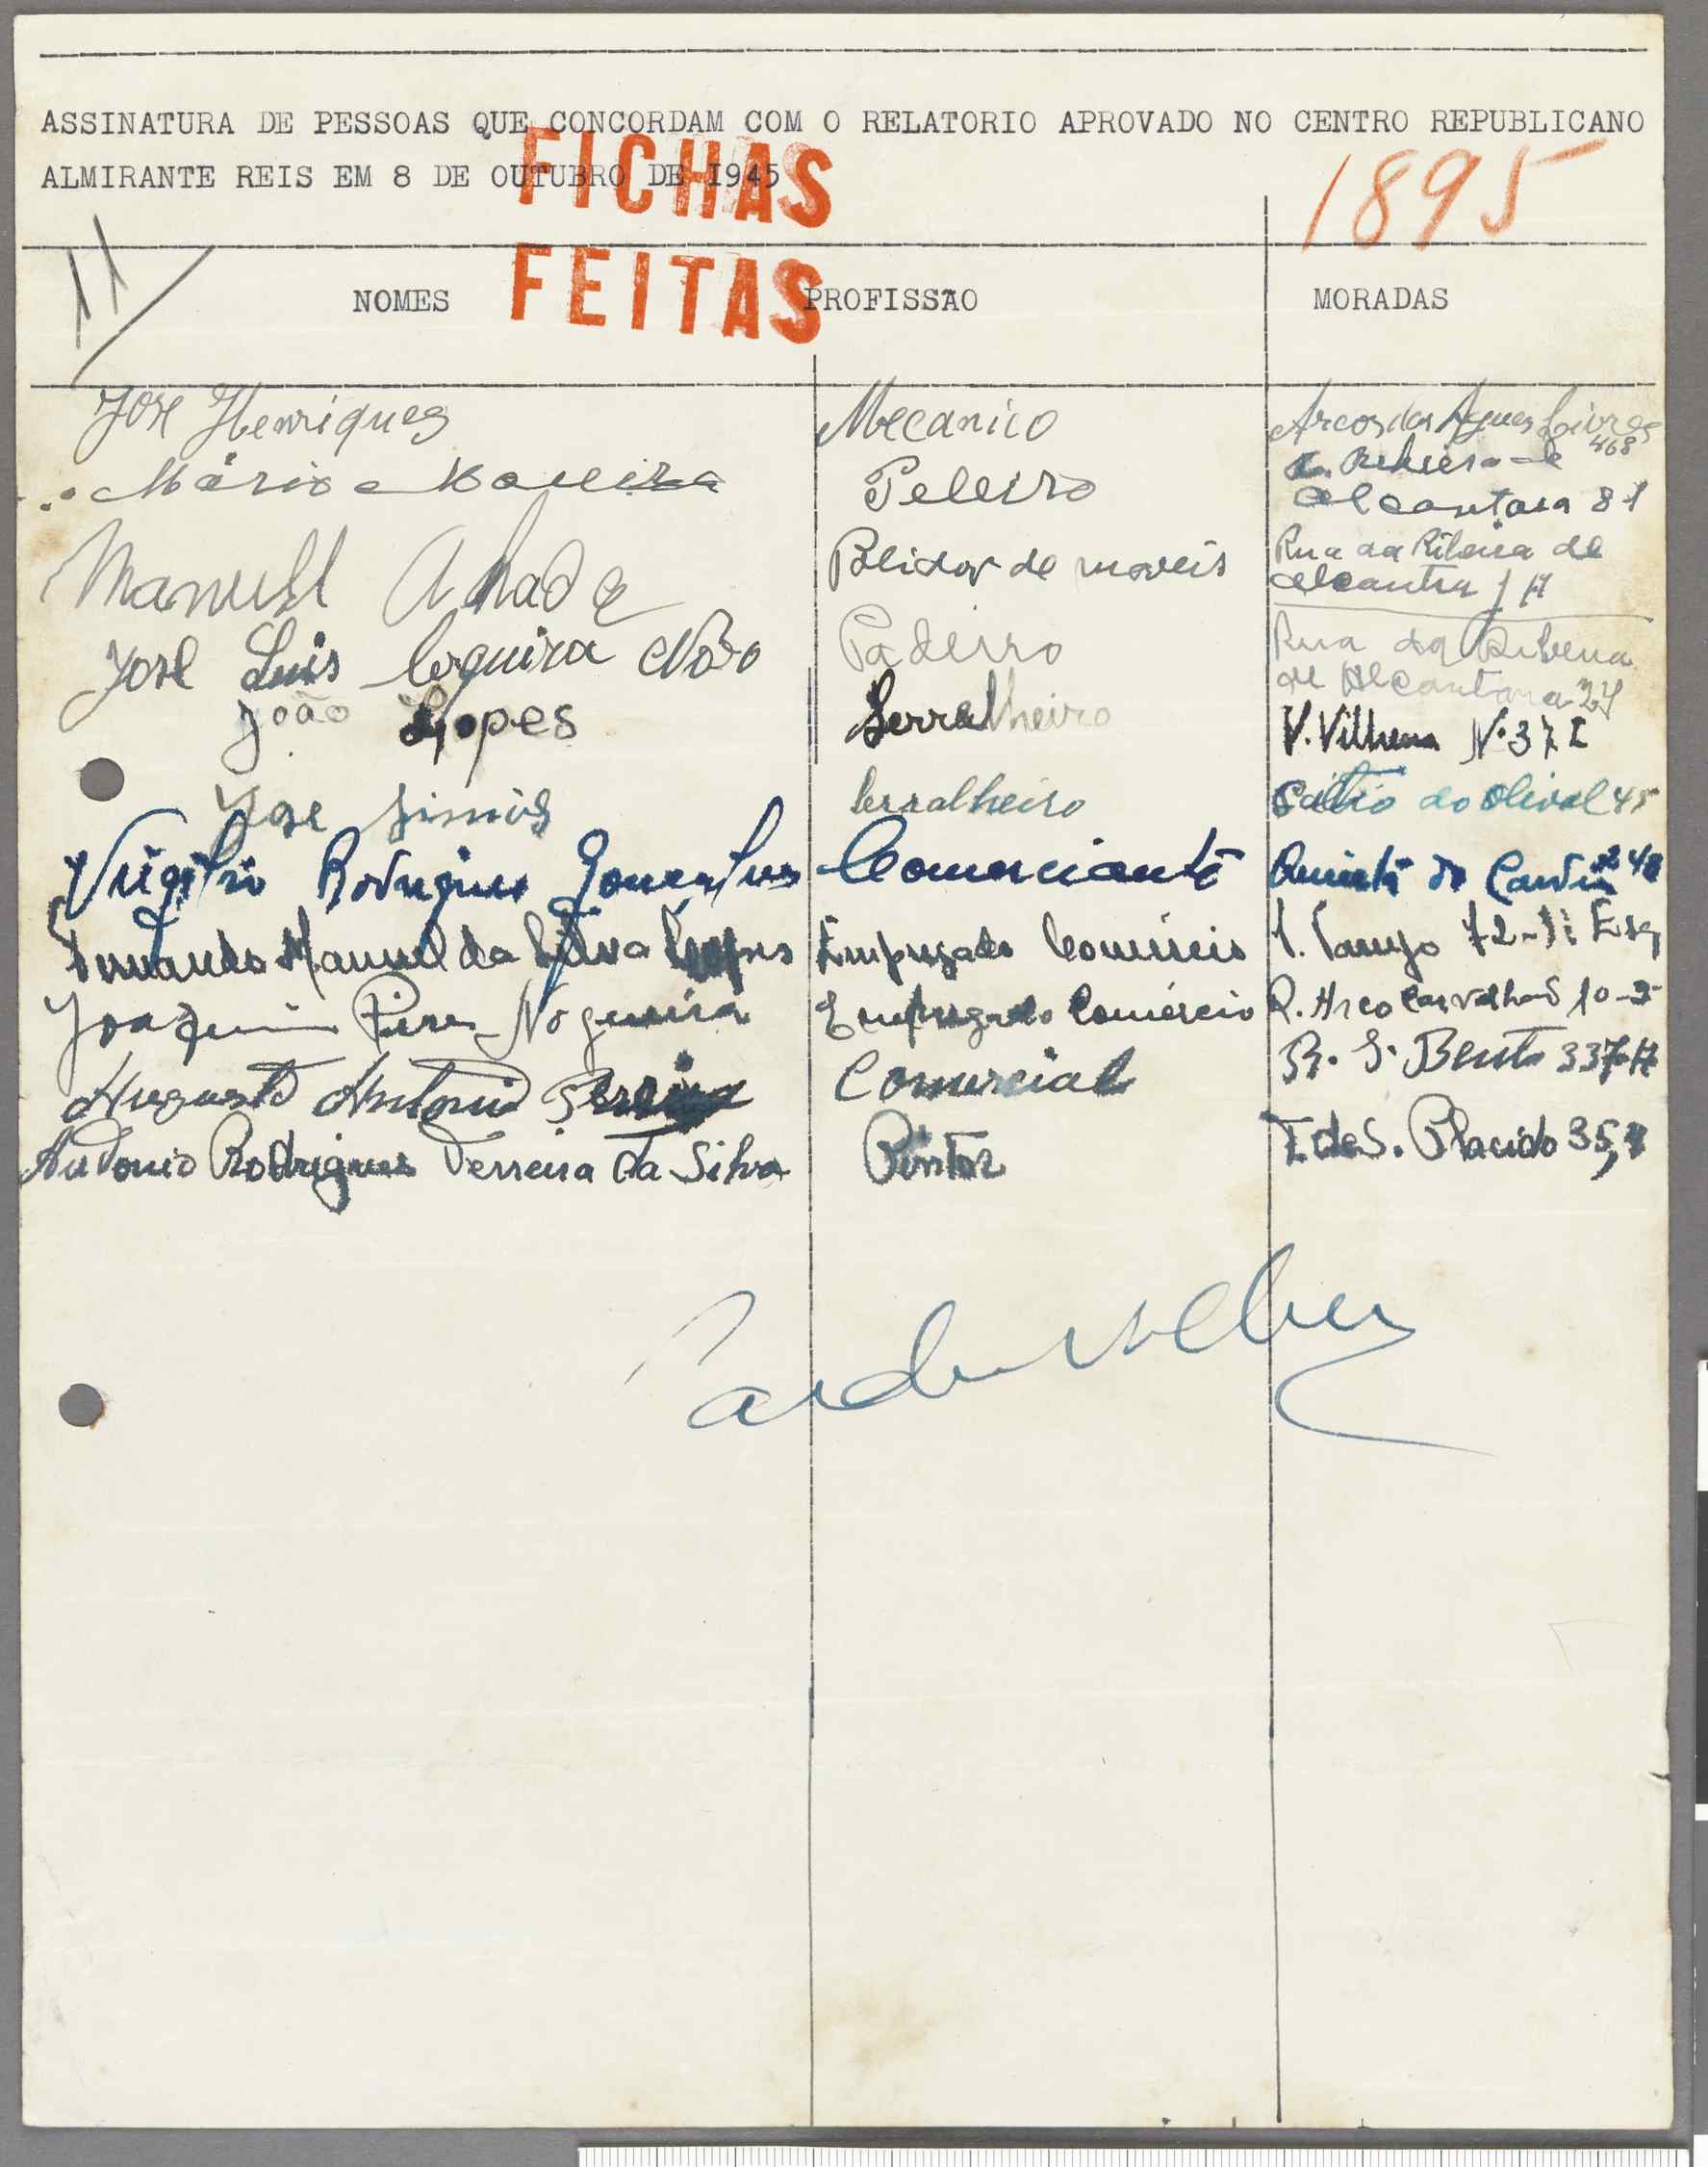 ASSINATURA DE PESSOAS QUE CONCORDAM COM O RELATORIO APROVADO NO CENTRO REPUBLICANO
ALMIRANTE REIS EM 8 DE OUTUBRO DE I945
FICHAS
FEITAS
1895
11
NOMES PROFISSÃO MORADAS
José Henriques Mecanico Arcos das Aguas Livres
468
Mário Peleiro
Alcantara 81
Manuel Polidor de moveis Rua da Ribeira de
Alcantra 1 A
José Luis Cerqueira Nóvo Paderro Rua da Ribeira
de Alcantara 27
João Lopes Serralheiro V. Vilhena Nº 37 I
José Simões Serralheiro Patio do Olival 45
Virgilio Rodrigues Gonçalves Comerciante Quinta do
Fernando Manuel da Silva Lopes Empregado Comércio 72-
Joaquim Pires Nogueira Empregado Comércio R. Arco Carvalhão 10-
Augusto Antonio Comercial R. S. Bento 337-A
Antonio Rodrigues Ferreira da Silva Pintor T. de S. Placido 35,